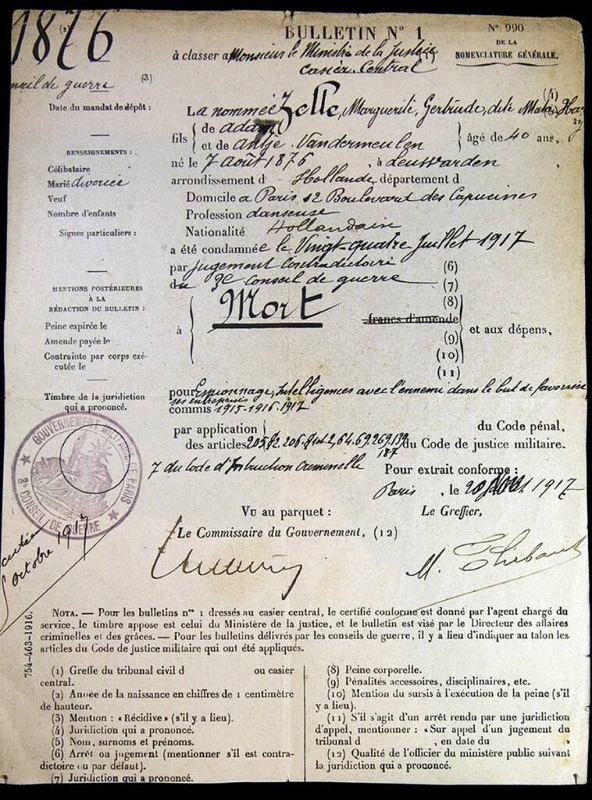 1876
BULLETIN N° 1
N° 990
DE LA
NOMENCLATURE GÉNÉRALE.
à classer a Monsieur le Ministre de la Justice
Casier Central
de guerre (3)
Date du mandat de dépôt :
La nommée Zelle, Marguerite, Gertrude, dite Mata-Hari
fils { de Adam
et de Antje Vandermeulen } âgé de 40 ans,
né le 7 Août 1876, à Leuwarden
arrondissement d Hollande, département d
Domicile a Paris 12 Boulevard des Capucines
Profession danseuse
Nationalité Hollandaise
RENSEIGNEMENTS :
Célibataire
Marié divorcée
Veuf
Nombre d'enfants
Signes particuliers :
a été condamnée le Vingt-quatre Juillet 1917
par jugement Contradictoire (6)
du 3e Conseil de guerre (7)
à Mort (8)
francs d'amende
(9)
(10)
(11)
et aux dépens,
MENTIONS POSTÉRIEURES
À LA
RÉDACTION DU BULLETIN :
Peine expirée le
Amende payée le
Contrainte par corps exé-
cutée le
Timbre de la juridiction
qui a prononcé.
pour Espionnage, Intelligences avec l'ennemi dans le but de favoriser
ses entreprises
commis 1915-1916-1917
par application du Code pénal,
des articles 205, 206, 2, 64, 69, 269, 187 du Code de justice militaire.
7 du Code d'Instruction Criminelle
Pour extrait conforme :
Paris, le 1917
GOUVERNEMENT MILITAIRE DE PARIS
3e CONSEIL DE GUERRE
octobre 1917
Vu au parquet :
Le Commissaire du Gouvernement, (12)
Le Greffier,
M. Thibaut
754-463-1916.
NOTA. — Pour les bulletins nos 1 dressés au casier central, le certifié conforme est donné par l'agent chargé du
service, le timbre apposé est celui du Ministère de la justice, et le bulletin est visé par le Directeur des affaires
criminelles et des grâces. — Pour les bulletins délivrés par les conseils de guerre, il y a lieu d'indiquer au talon les
articles du Code de justice militaire qui ont été appliqués.
(1) Greffe du tribunal civil d ou casier
central.
(2) Année de la naissance en chiffres de 1 centimètre
de hauteur.
(3) Mention : « Récidive » (s'il y a lieu).
(4) Juridiction qui a prononcé.
(5) Nom, surnoms et prénoms.
(6) Arrêt ou jugement (mentionner s'il est contra-
dictoire ou par défaut).
(7) Juridiction qui a prononcé.
(8) Peine corporelle.
(9) Pénalités accessoires, disciplinaires, etc.
(10) Mention du sursis à l'exécution de la peine (s'il
y a lieu).
(11) S'il s'agit d'un arrêt rendu par une juridiction
d'appel, mentionner : « Sur appel d'un jugement du
tribunal d , en date du ».
(12) Qualité de l'officier du ministère public suivant
la juridiction qui a prononcé.